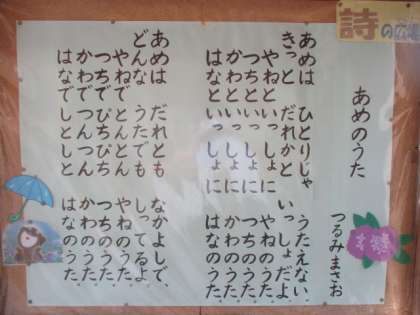 詩の広場
あめのうた
つるみ まさお
あめは ひとりじゃ うたえない、
きっと だれかと いっしょだよ。
やねと いっしょに やねのうた
つちと いっしょに つちのうた
かわと いっしょに かわのうた
はなと いっしょに はなのうた。
あめは だれとも なかよしで、
どんな うたでも しってるよ。
やねで とんとん やねのうた
つちで ぴちぴち つちのうた
かわで つんつん かわのうた
はなで しとしと はなのうた。